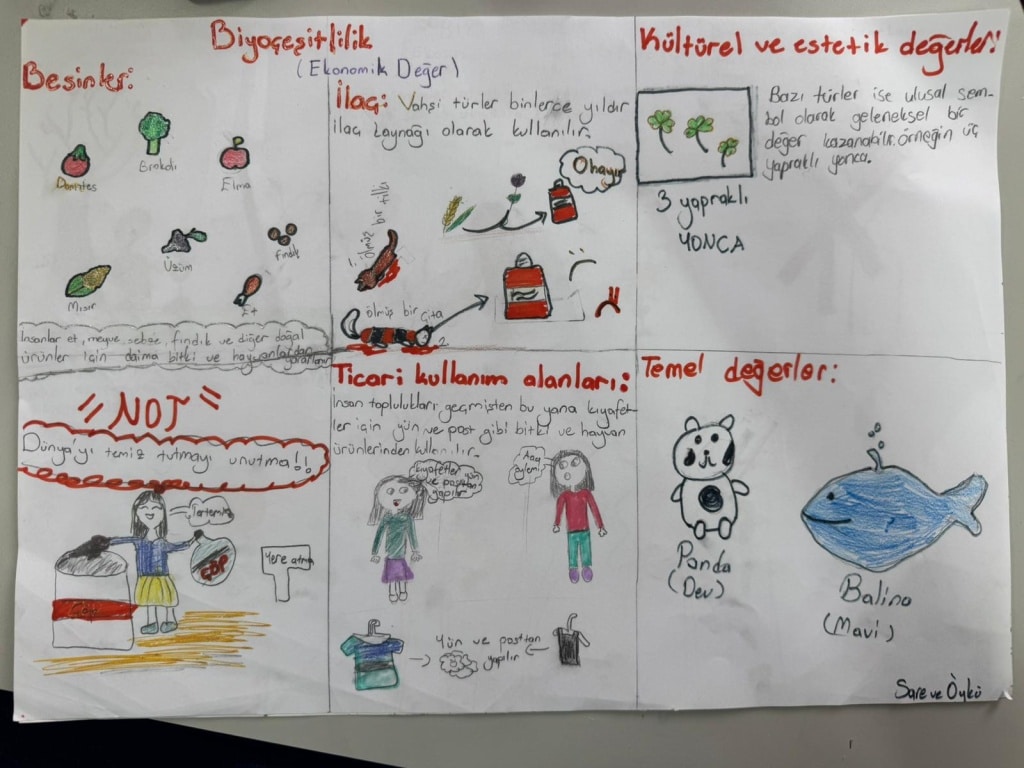 Biyoçeşitlilik
(Ekonomik Değer)
Besinler:
Brokoli
Domates
Elma
Üzüm
Fındık
Mısır
Et
İnsanlar et, meyve, sebze, fındık ve diğer doğal
ürünler için daima bitki ve hayvanlardan yararlanır
İlaç: Vahşi türler binlerce yıldır
ilaç kaynağı olarak kullanılır.
O hayır
ölmüş bir tilki
ölmüş bir çita
Kültürel ve estetik değerler:
Bazı türler ise ulusal sem-
bol olarak geleneksel bir
değer kazanabilir. örneğin üç
yapraklı yonca.
3 yapraklı
YONCA
"NOT"
Dünya'yı temiz tutmayı unutma!!
Tertemiz
ÇÖP
Çöp
Yere atma
Ticari kullanım alanları:
İnsan toplulukları geçmişten bu yana kıyafet-
ler için yün ve post gibi bitki ve hayvan
ürünlerinden kullanılır.
kıyafetler yün
ve posttan
yapılır
öyle mi
Yün ve posttan
yapılır
Temel değerler:
Panda
(Dev)
Balina
(Mavi)
Sare ve Öykü